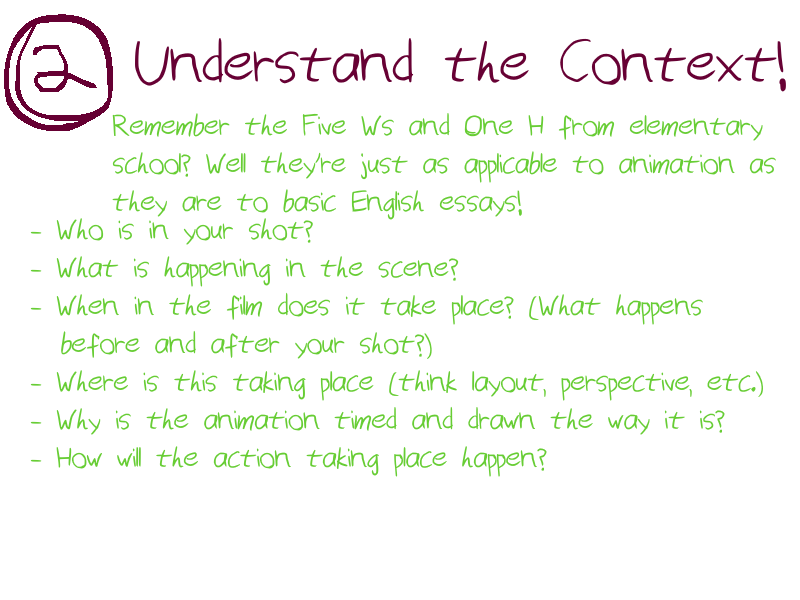 2 Understand the Context!
Remember the Five Ws and One H from elementary
school? Well they're just as applicable to animation as
they are to basic English essays!
- Who is in your shot?
- What is happening in the scene?
- When in the film does it take place? (What happens
before and after your shot?)
- Where is this taking place (think layout, perspective, etc.)
- Why is the animation timed and drawn the way it is?
- How will the action taking place happen?